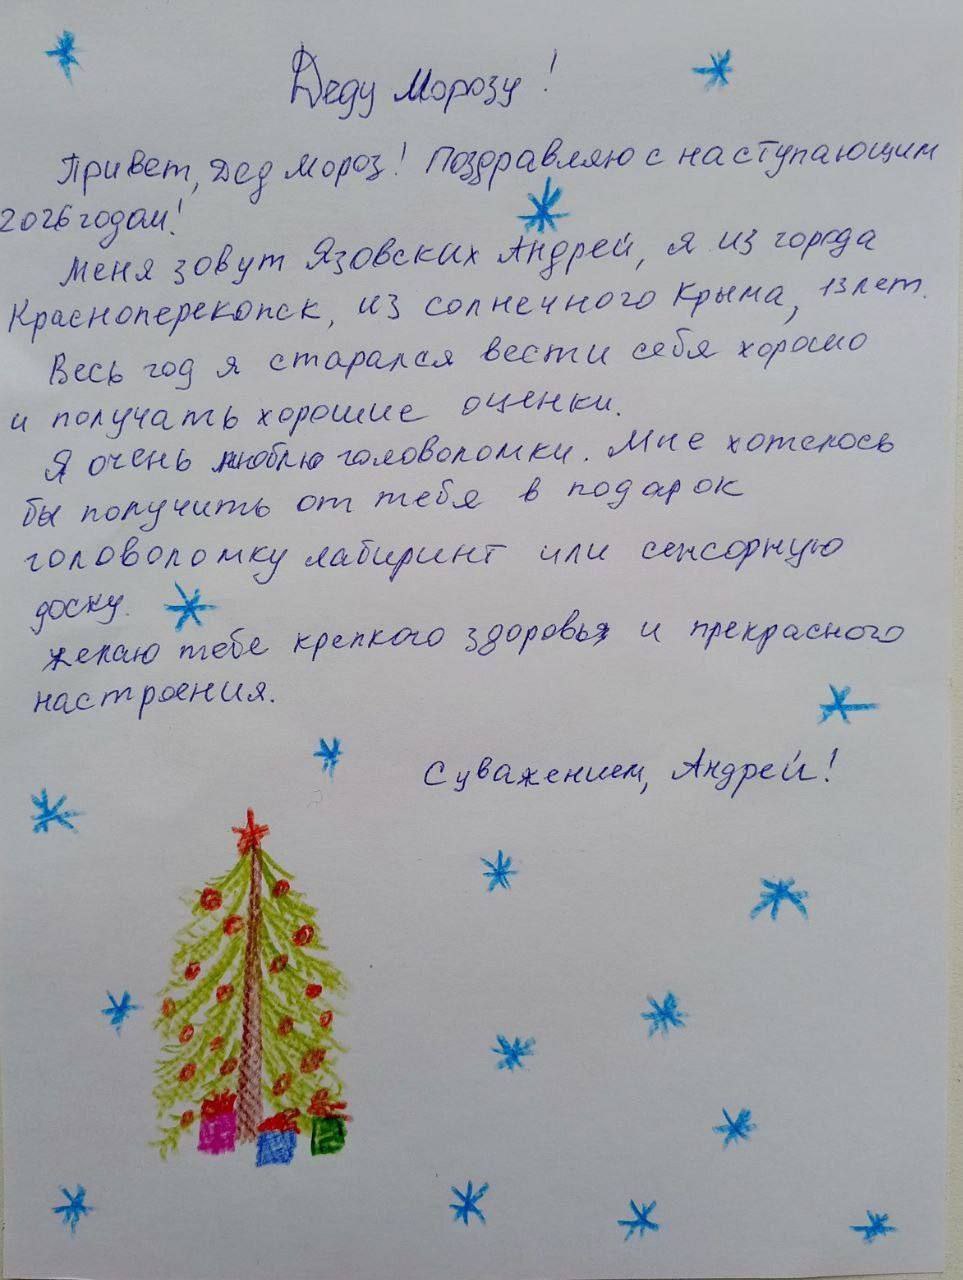 Деду Морозу!
Привет, Дед Мороз! Поздравляю с наступающим
2026 годом!
Меня зовут Язовских Андрей, я из города
Красноперекопск, из солнечного Крыма, 13 лет.
Весь год я старался вести себя хорошо
и получать хорошие оценки.
Я очень люблю головоломки. Мне хотелось
бы получить от тебя в подарок
головоломку лабиринт или сенсорную
доску.
Желаю тебе крепкого здоровья и прекрасного
настроения.
С уважением, Андрей!